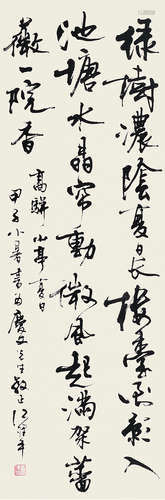 綠樹濃陰夏日長樓臺倒影入
池塘水晶帘動微風起滿架薔
薇一院香
高駢山亭夏日
甲子小暑書為慶